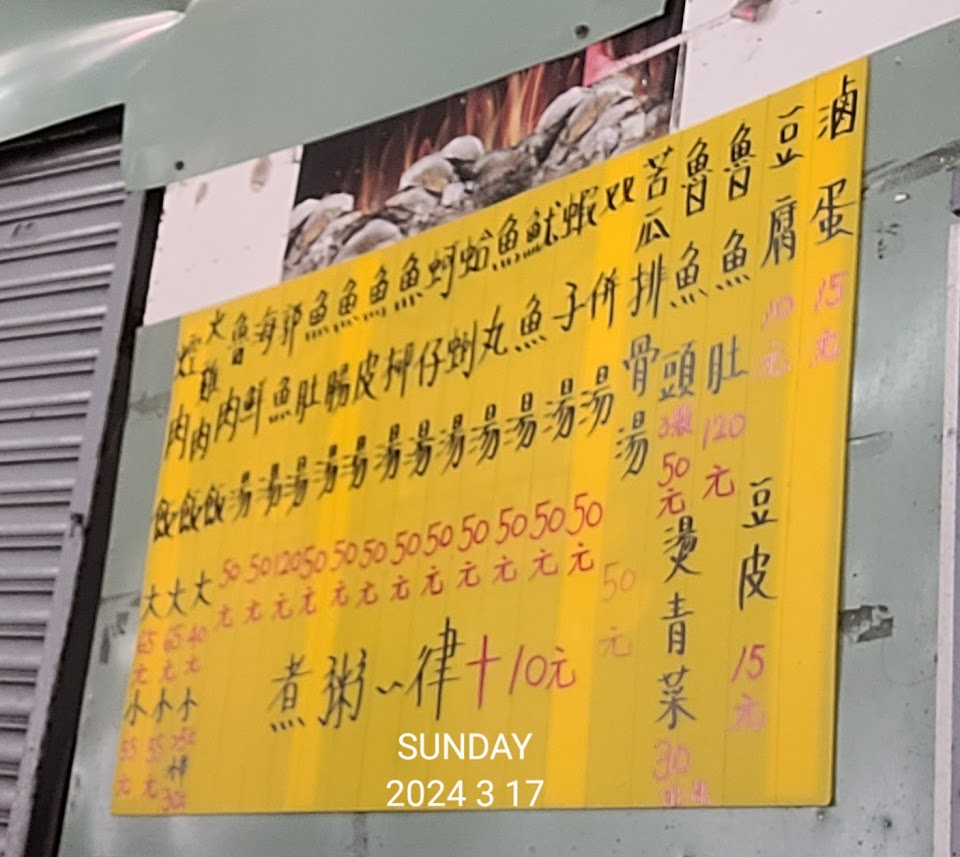 焢肉飯 大65元 小55元
火雞肉飯 大65元 小55元
魯肉飯 大40元 小
海鮮湯 50元
魚湯 50元
魚肚湯 120元
魚腸湯 50元
魚皮湯 50元
魚湯 50元
蚵仔湯 50元
蛤蜊湯 50元
魚丸湯 50元
魷魚湯 50元
蝦子湯 50元
双併湯 50元
苦瓜排骨湯 50元
魯魚頭 50元
燙青菜 30
魯魚肚 120元
豆腐 10元
豆皮 15元
滷蛋 15元
煮粥一律+10元
SUNDAY
2024 3 17